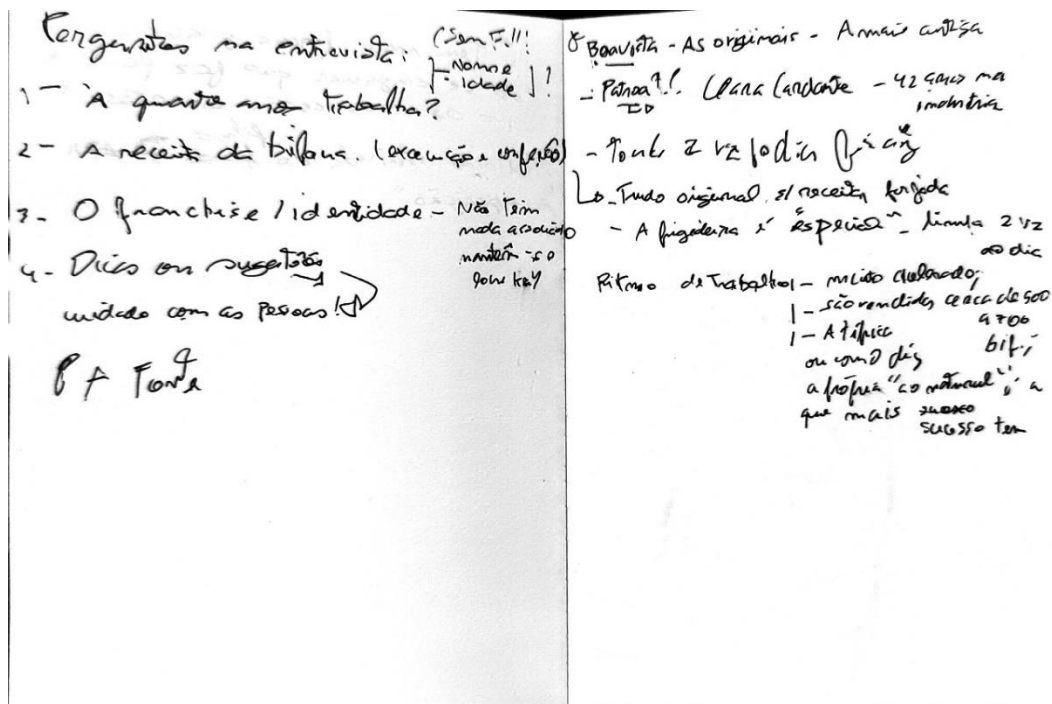 Perguntas na entrevista:
(Sem F.!!!
- Nome
- Idade ]!
1 - À quanto anos trabalha?
2 - A receita da bifana. (execução e confeção)
3 - O franchise / identidade - Não tem
nada acodido
mantém-se o
low key
4 - Dicas ou sugestões
cuidado com as pessoas!
A Fonte
Boavista - As originais - A mais antiga
- Patroa?!. Clara - 42 anos na
indústria
2 vz
- Tudo original, s/ receita forjada
- A frigideira é "especial" - limpa 2 vz
ao dia
Ritmo de Trabalho - muito acelerado;
- são vendidas cerca de 500
a 700
bif.;
- A típica
ou como diz
a própria "ao natural"; a
que mais
sucesso tem